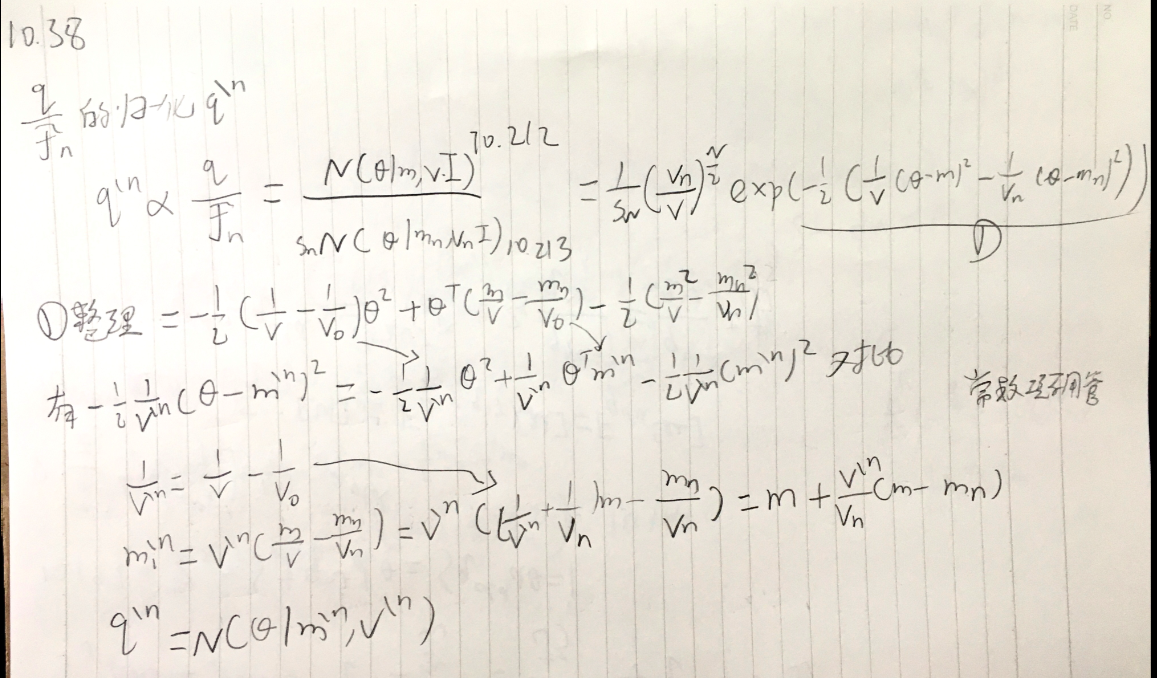 10.38
q/f̃n 的归一化 q\n
q\n ∝ q/f̃n = N(θ|m,v·I) 10.212 / snN(θ|mn,vnI) 10.213 = 1/sn (vn/v)^(N/2) exp(-1/2 (1/v (θ-m)² - 1/vn (θ-mn)²)) ①
①整理 = -1/2 (1/v - 1/v0)θ² + θᵀ(m/v - mn/v0) - 1/2 (m²/v - mn²/vn)
有 -1/2 1/v\n (θ-m\n)² = -1/2 1/v\n θ² + 1/v\n θᵀm\n - 1/2 1/v\n (m\n)² 对比 常数项不用管
1/v\n = 1/v - 1/v0
m\n = v\n (m/v - mn/vn) = v\n ((1/v\n + 1/vn)m - mn/vn) = m + v\n/vn (m - mn)
q\n = N(θ|m\n, v\n)